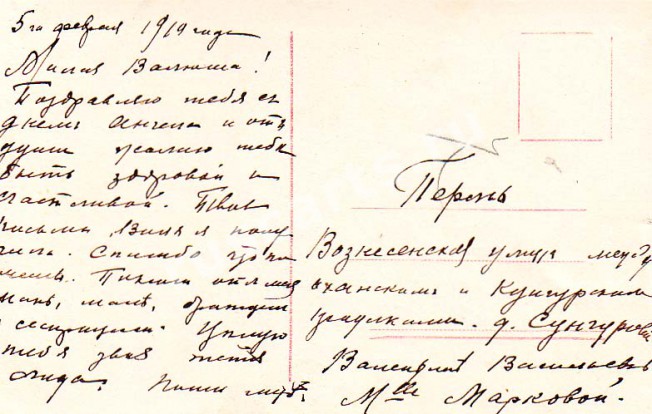 5го февраля 1919 года
Милая Валюша!
Поздравляю тебя съ
днемъ Ангела и отъ
души желаю тебѣ
быть здоровой и
счастливой. Твое
письмо, Валя я полу
чила. Спасибо
очень.
мамѣ,
и сестрицамъ. Целую
тебя твоя тетя
Лида. Пиши
Пермь
Вознесенская улица между
Оханскимъ и Кунгурскимъ
переулками. д. Сунгуровой
Валентинѣ Васильевнѣ
Mlle Марковой.